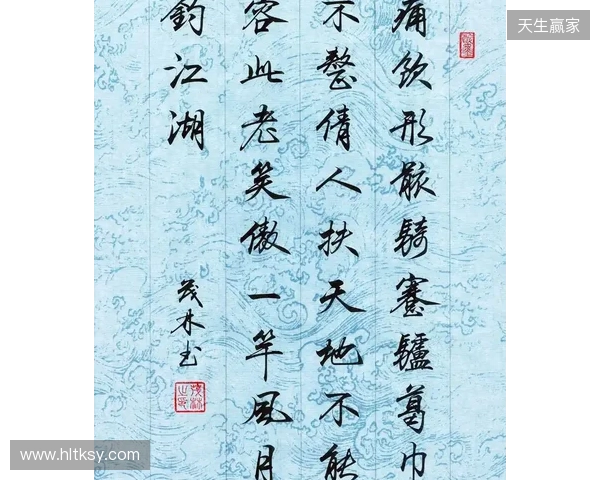 天生赢家
痛飲形骸騎蹇驢葛巾
不整倩人扶天地不能
容此老笑傲一竿風月
釣江湖
茂林书
www.hltksy.com